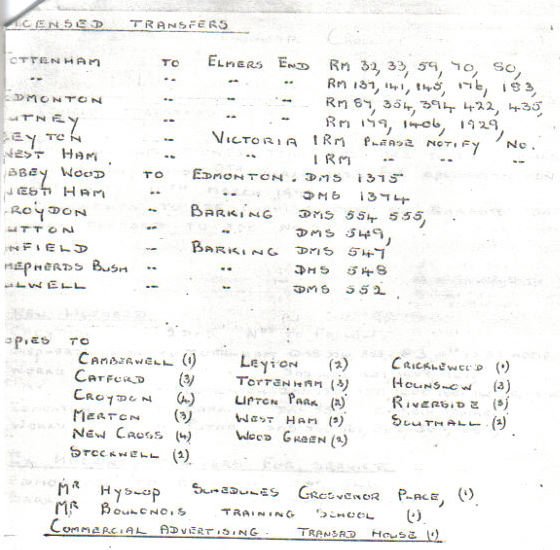 ICENSED TRANSFERS
OTTENHAM TO ELMERS END RM 32, 33, 59, 70, 80,
" " " " RM 137, 141, 145, 176, 183,
DMONTON " " " RM 87, 354, 394 422, 435,
UTNEY " " " RM 179, 1406, 1929,
EYTON " VICTORIA 1 RM PLEASE NOTIFY NO.
WEST HAM. " " 1 RM " " "
BBEY WOOD TO EDMONTON. DMS 1375
WEST HAM " " DMS 1374
ROYDON " BARKING DMS 554 555,
UTTON " " DMS 549,
NFIELD " BARKING DMS 547
HEPHERDS BUSH " " DMS 548
ULWELL " " DMS 552.
OPIES TO
CAMBERWELL (1) LEYTON (2) CRICKLEWOOD (1)
CATFORD (3) TOTTENHAM (3) HOUNSLOW (3)
CROYDON (4) UPTON PARK (2) RIVERSIDE (3)
MERTON (3) WEST HAM (3) SOUTHALL (2)
NEW CROSS (4) WOOD GREEN (2)
STOCKWELL (2)
MR HYSLOP SCHEDULES GROSVENOR PLACE, (1)
MR BOULONOIS TRAINING SCHOOL (1)
COMMERCIAL ADVERTISING. TRANSAD HOUSE (1)